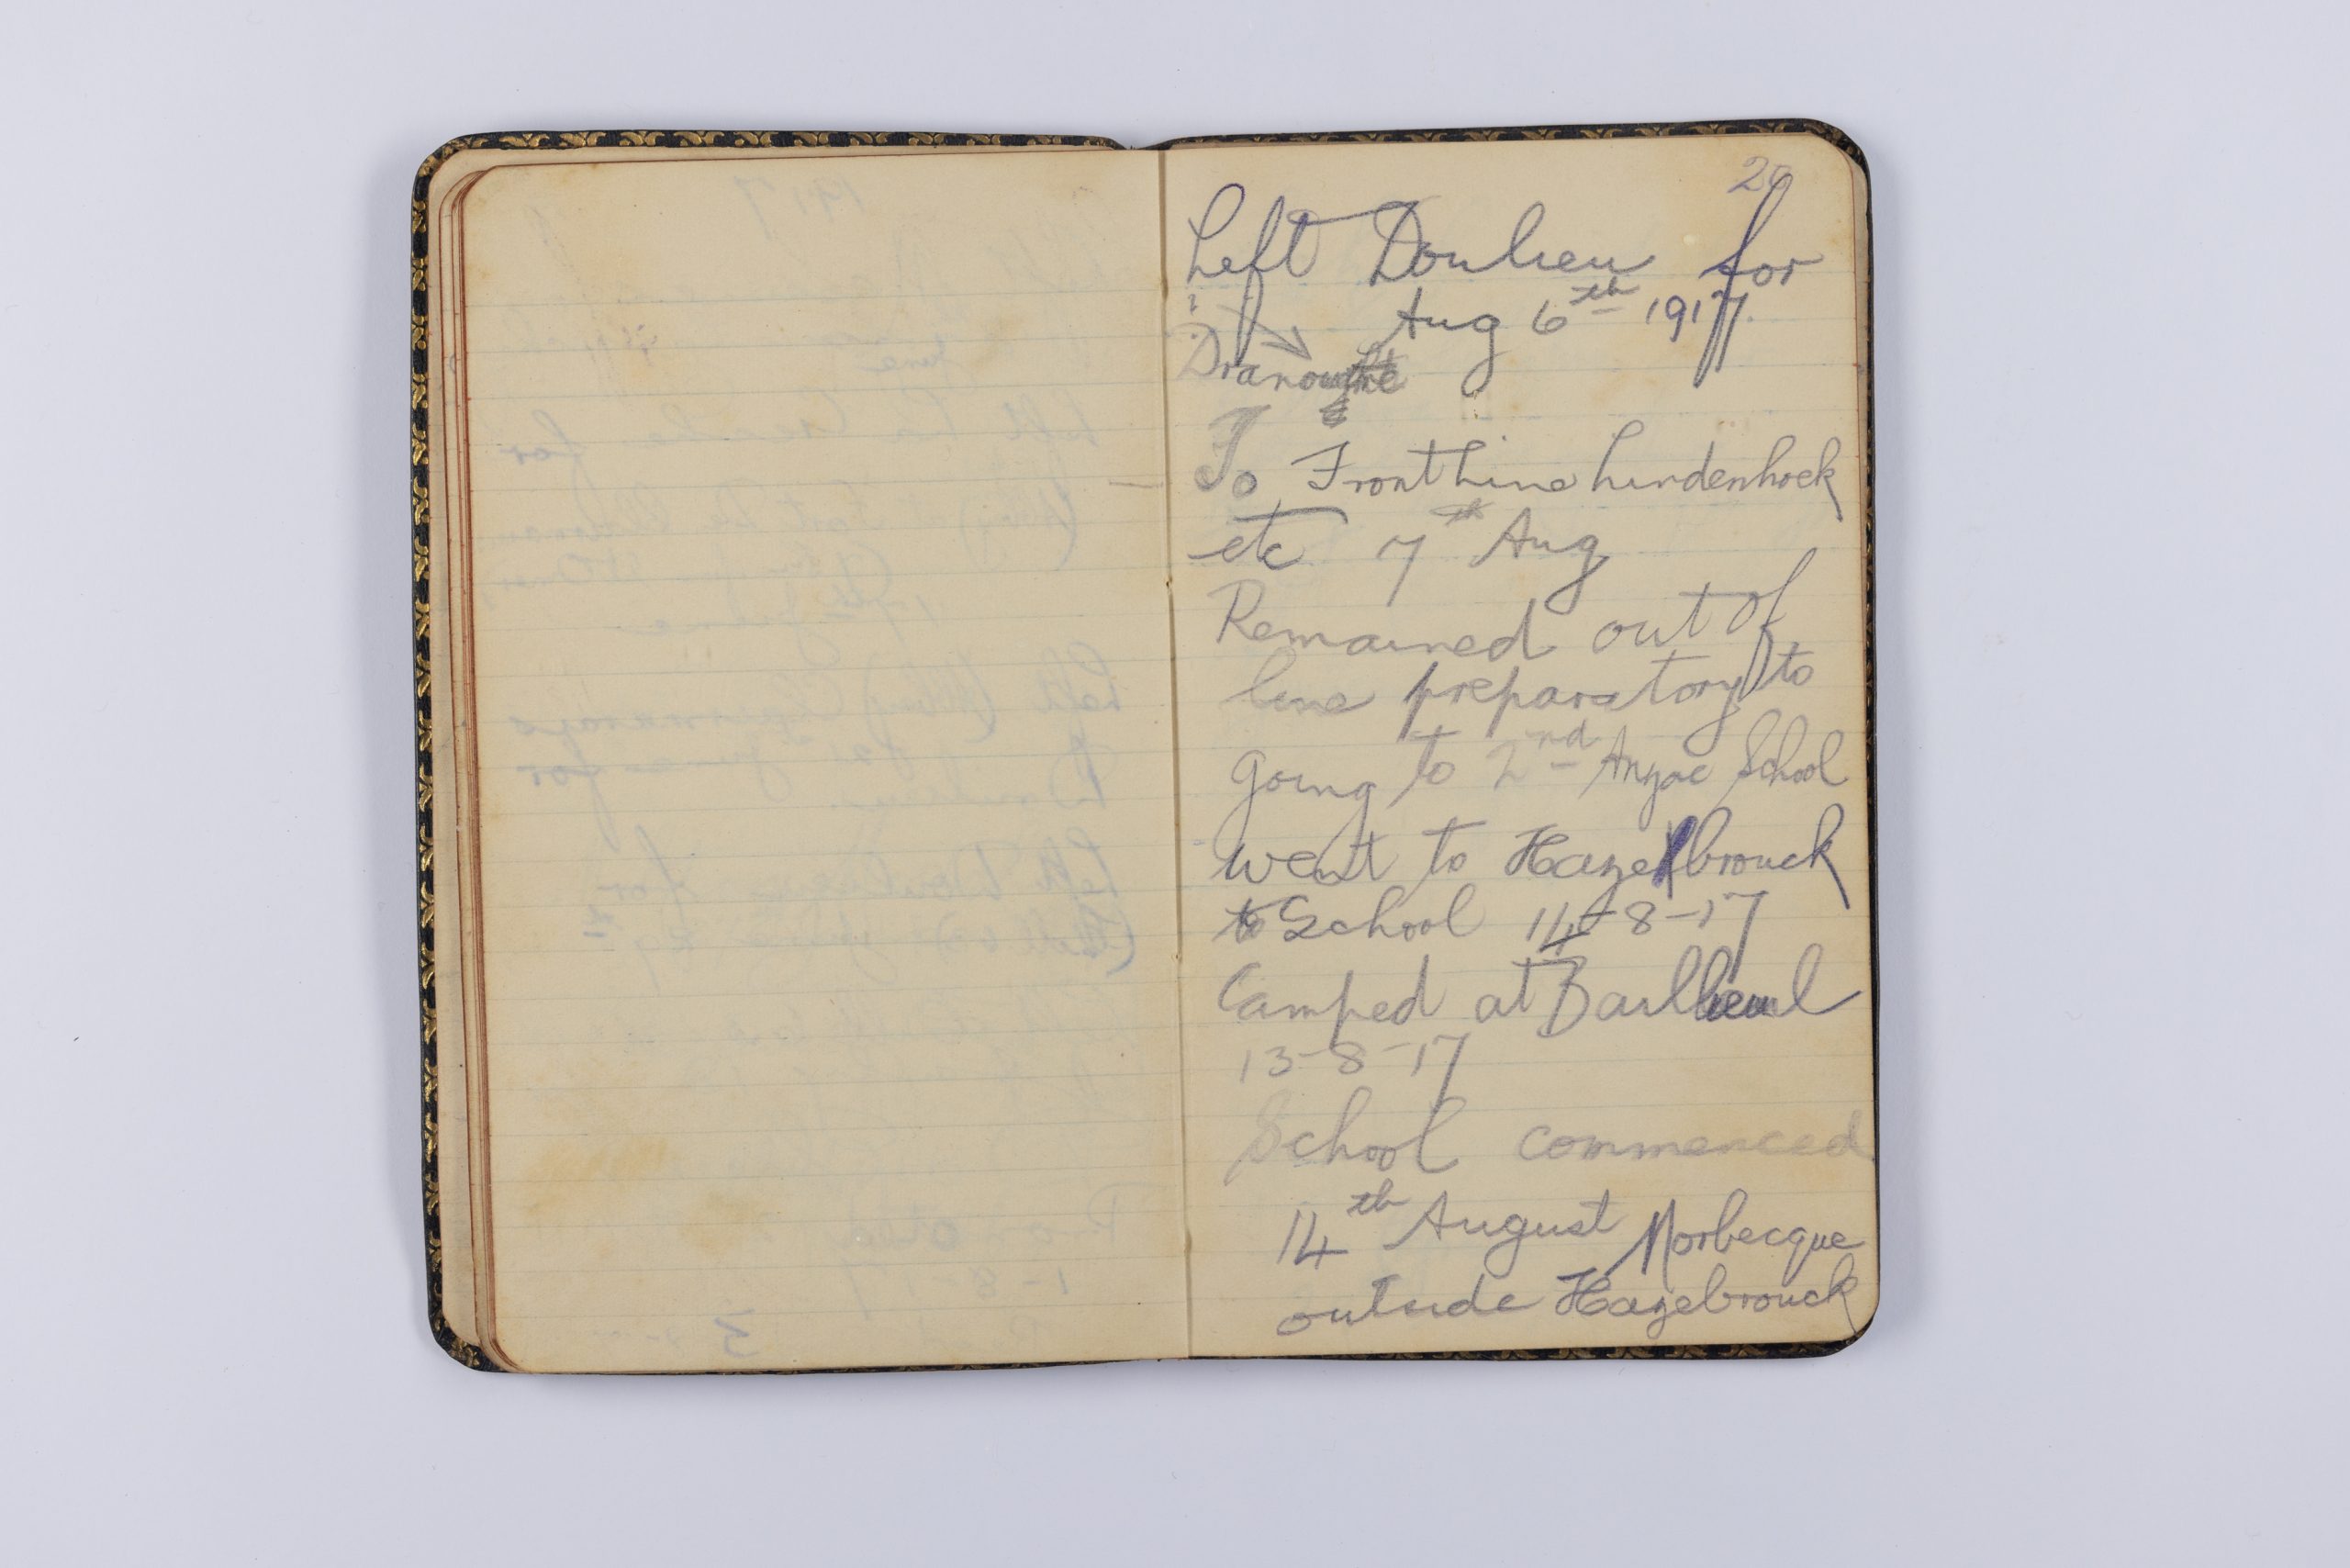 20
Left Doulieu for
Aug 6th 1917.
To Front Line Lindenhoek
etc 7th Aug
Remained out of
line preparatory to
going to 2nd Anzac School
went to Hazebrouck
to School 14-8-17
Camped at Bailleul
13-8-17
School commenced
14th August Morbecque
outside Hazebrouck